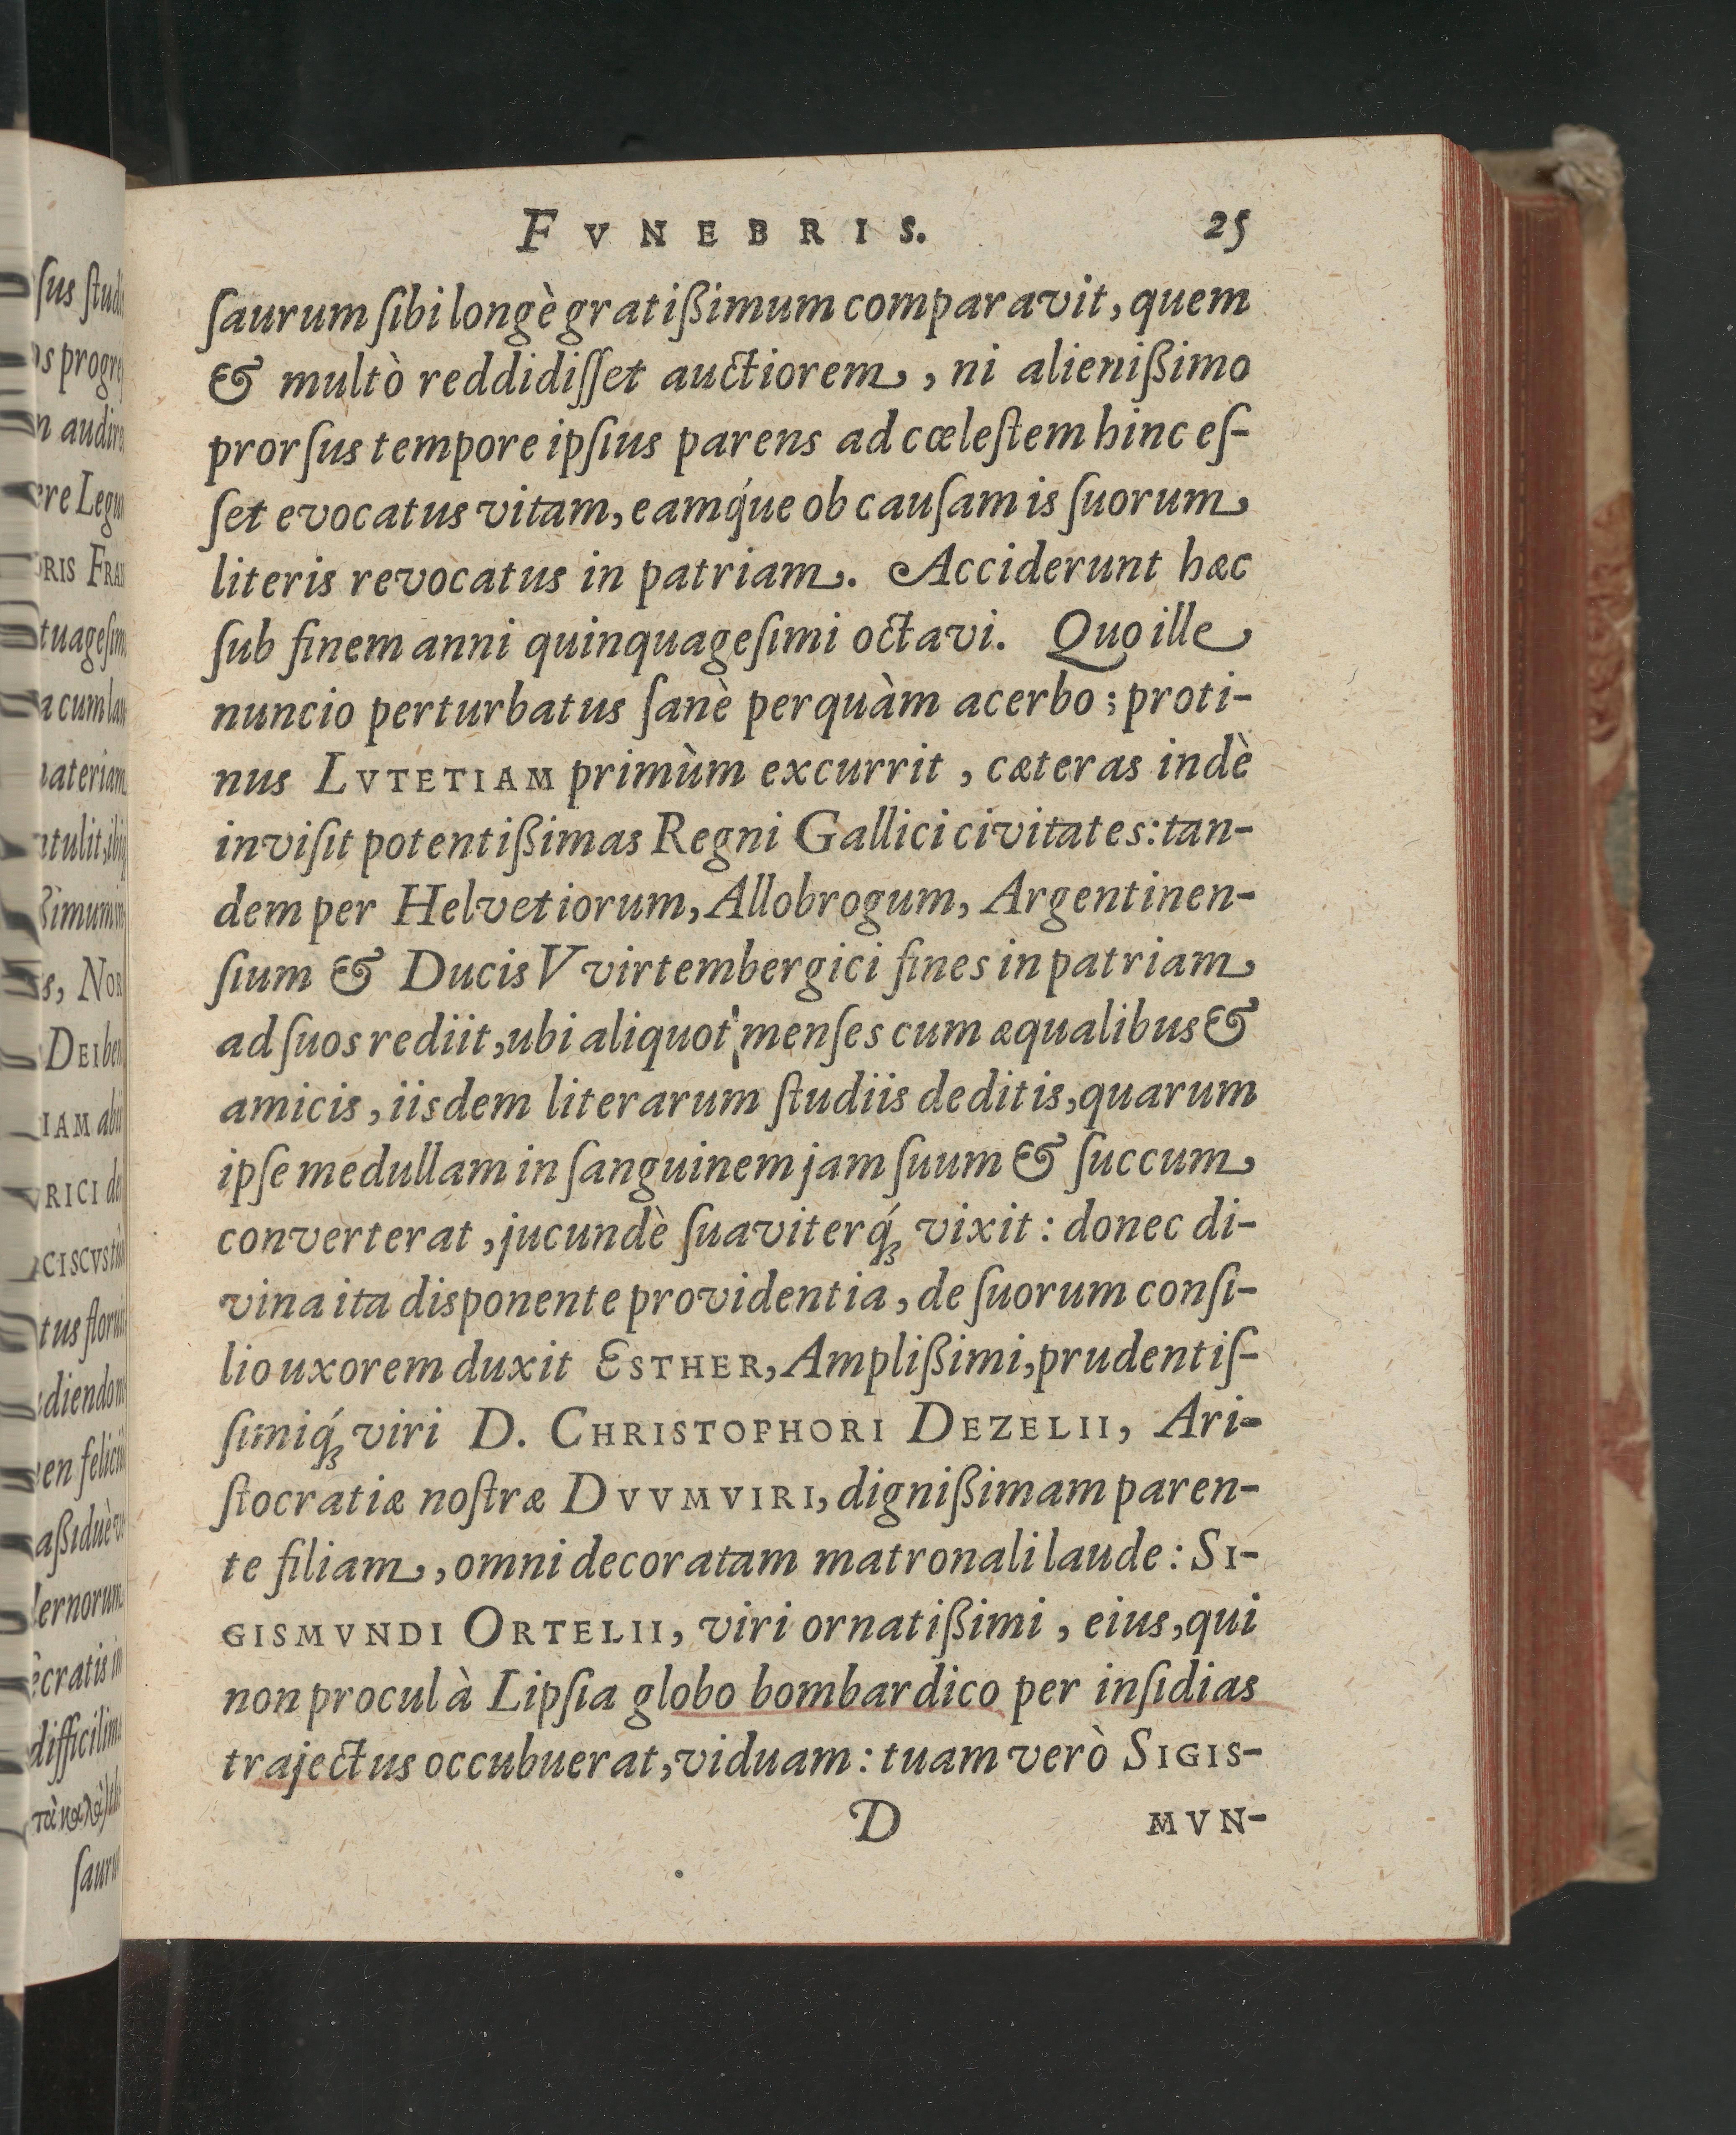 FVNEBRIS. 25
ſaurum ſibi longè gratißimum comparavit, quem
& multò reddidiſſet auctiorem, ni alienißimo
prorſus tempore ipſius parens ad cœleſtem hinc eſ-
ſet evocatus vitam, eamq́ue ob cauſam is ſuorum
literis revocatus in patriam. Acciderunt hæc
ſub finem anni quinquageſimi octavi. Quo ille
nuncio perturbatus ſanè perquàm acerbo; proti-
nus LVTETIAM primùm excurrit, cæteras indè
inviſit potentißimas Regni Gallici civitates: tan-
dem per Helvetiorum, Allobrogum, Argentinen-
ſium & Ducis VVirtembergici fines in patriam
ad ſuos rediit, ubi aliquot menſes cum æqualibus &
amicis, iisdem literarum ſtudiis deditis, quarum
ipſe medullam in ſanguinem jam ſuum & ſuccum
converterat, jucundè ſuaviterq́ꝫ vixit: donec di-
vina ita disponente providentia, de ſuorum conſi-
lio uxorem duxit ESTHER, Amplißimi, prudentiſ-
ſimiq́ꝫ viri D. CHRISTOPHORI DEZELII, Ari-
ſtocratiæ noſtræ DVVMVIRI, dignißimam paren-
te filiam, omni decoratam matronali laude: SI-
GISMVNDI ORTELII, viri ornatißimi, eius, qui
non procul à Lipſia globo bombardico per inſidias
trajectus occubuerat, viduam: tuam verò SIGIS-
D MVN-